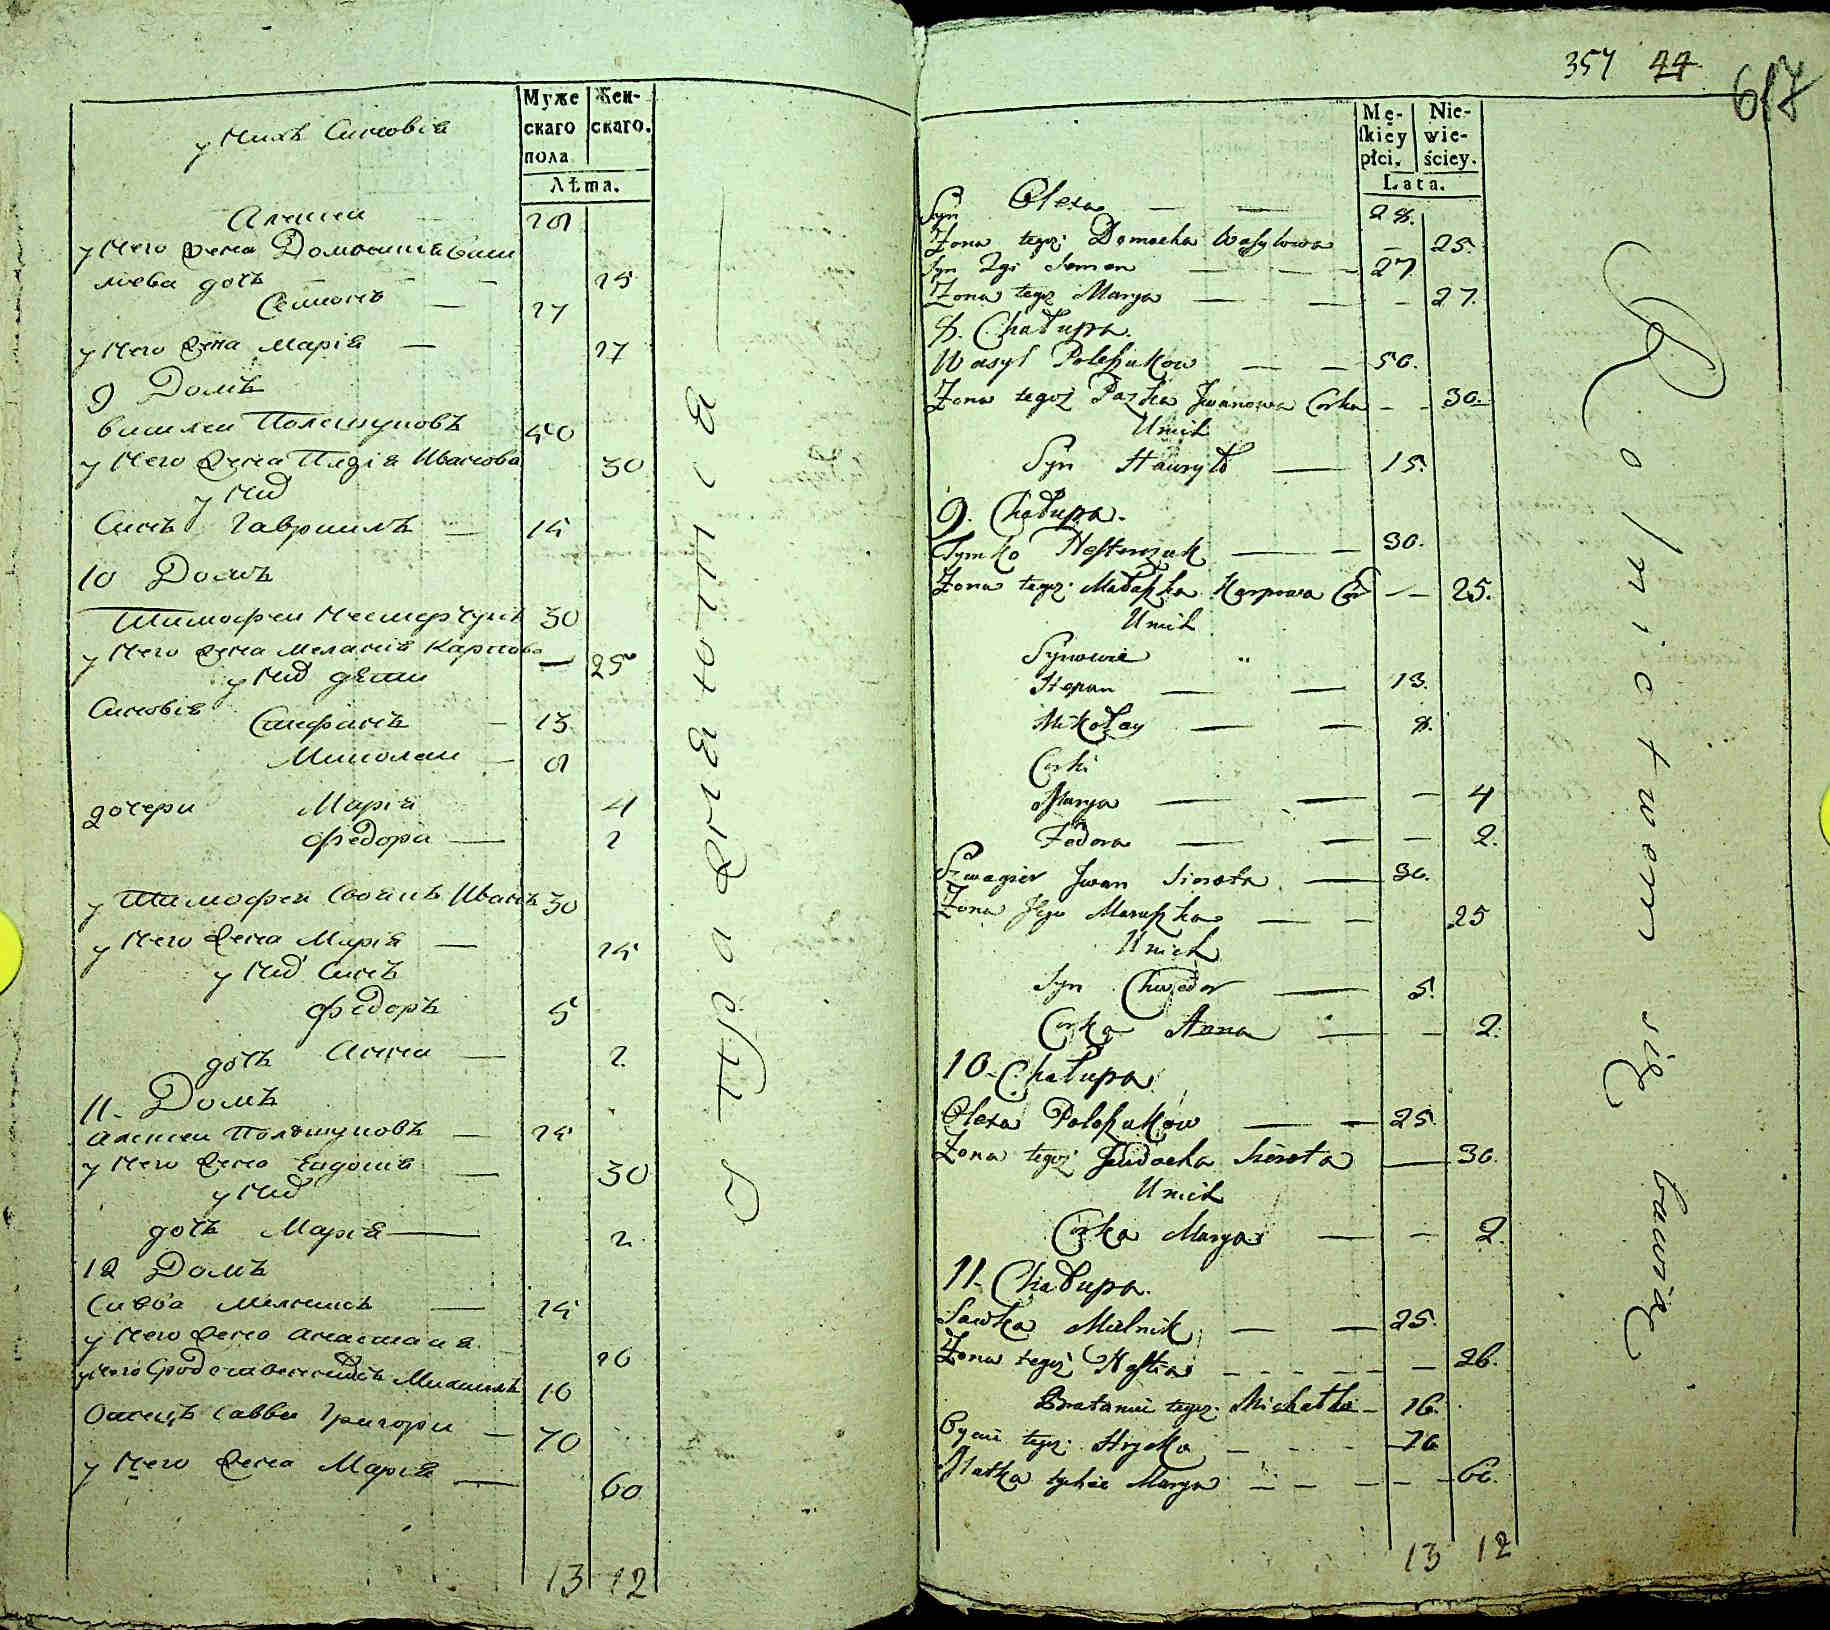 Муже
скаго
пола
Жен-
скаго.
Лѣта.
у нихъ Синовія
Алексей — 28
у него жена Домникія Васи
льева дочь — 25
Семионъ — 27
у него жена Марія — 27
9 Домъ
Василей Полещуковъ 50
у него жена Пазія Иванова 30
у них
Синъ Гавриилъ — 15
10 Домъ
Тимофей Нестерчукъ 30
у него жена Меланія Карпова — 25
у них дети
Синовія Стефанъ — 13
Миколай — 8
дочери Марія 4
Федора — 2
у Тимофея своякъ Иванъ 30
у него жена Марія — 25
у них Синъ
Федоръ 5
дочь Анна — 2
11. Домъ
Алексей Полещуковъ — 25
у него жена Евдокия — 30
у них
дочь Марія — 2
12 Домъ
Савва Мелникъ — 25
у него жена Анастасия 26
у него Михаилъ 16
Отецъ Саввы Григори — 70
у него жена Марія — 60
13 12
упражняются
357 44
617
Mę-
skiéy
płci.
Nie-
wie-
ściey.
Lata.
Syn Olexa — — 28.
Zona tegoż Domacha Wasylowa — 25.
Syn 2gi Semen — — — 27
Zona tegoż Marya — — — 27.
8. Chałupa.
Wasyl Poleszukow — — 50.
Zona tegoż Pazka Jwanowa Corka — — 30.
U nich
Syn Hawryło — 15.
9. Chałupa.
Tymko Nesterczuk — — 30.
Zona tegoż Małaszka Karpowa Cor — — 25.
U nich
Synowie
Stepan — — 13.
Mikołay — — 8.
Corki
Marya — — — 4
Fedora — — — 2.
Szwagier Jwan Sirota — 30.
Zona Jego Maruszka — — 25
U nich
Syn Chwedor — 5.
Corka Anna — — 2.
10. Chałupa
Olexa Poleszukow — — 25.
Zona tegoż Jewdocha Sirota — 30.
U nich
Corka Marya — — 2.
11. Chałupa.
Sawka Melnik — — 25.
Zona tegoż Nastia — — — — — 26.
Bratanic tegoż Michałko — 16.
Oyciec tegoż Hrycko — — — — 70
Matka tychże Marya — — — — — 60.
13 12
Rolnictwem się bawią